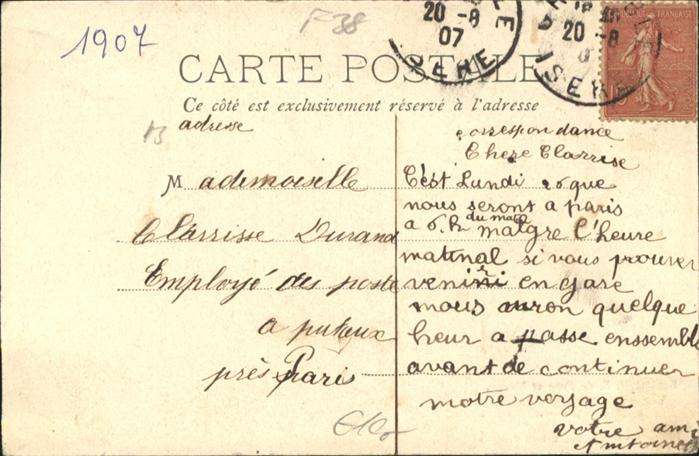 1907
F38
20 -8
07
ISERE
20 -8
ISERE
CARTE POSTALE
Ce côté est exclusivement réservé à l'adresse
adresse
Mademoiselle
Clarrisse Durand
Employé des poste
a puteux
près Paris
correspondance
Chere Clarrise
C'est Lundi 26 que
nous seront a paris
a 6.h du matin
malgre l'heure
matinal si vous prouver
venir en gare
nous auron quelque
heur a passe enssemble
avant de continuer
notre voyage
votre ami
Antoine